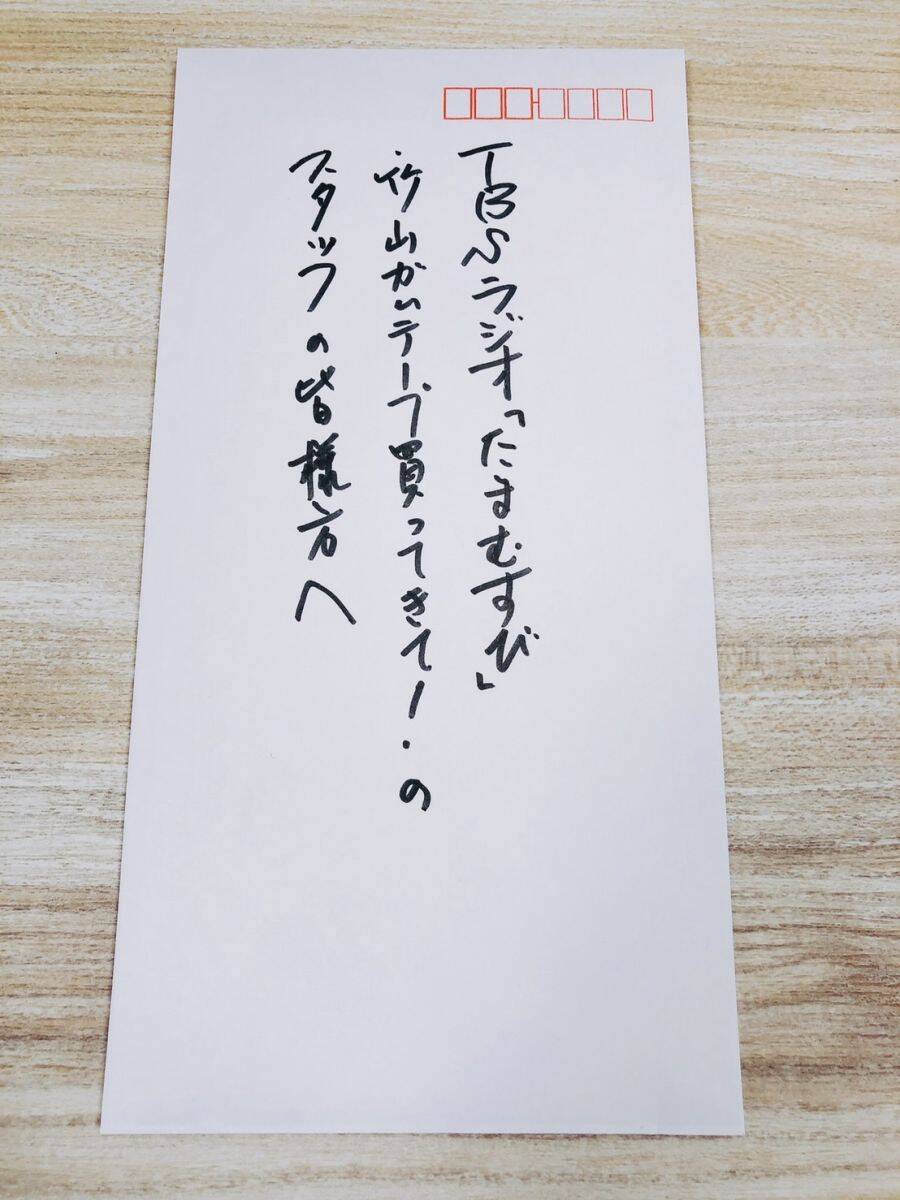 TBSラジオ「たまむすび」
竹山ガムテープ買ってきて！の
スタッフの皆様方へ